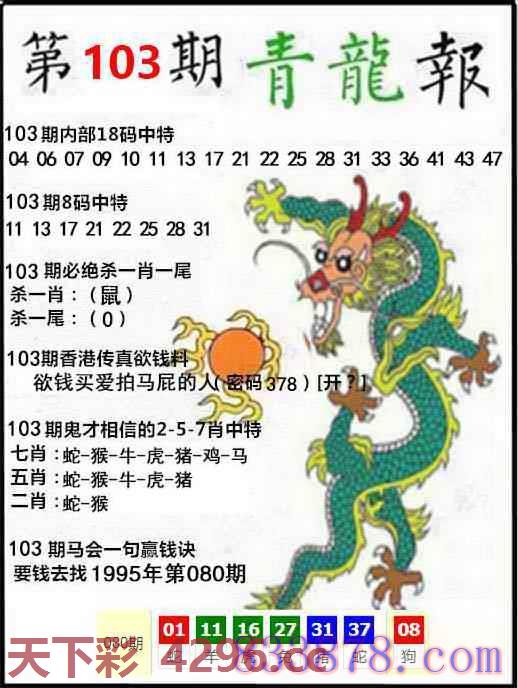 第103期 青龍報
103期内部18码中特
04 06 07 09 10 11 13 17 21 22 25 28 31 33 36 41 43 47
103期8码中特
11 13 17 21 22 25 28 31
103期必绝杀一肖一尾
杀一肖：（鼠）
杀一尾：（0）
103期香港传真欲钱料
欲钱买爱拍马屁的人(密码378)[开？]
103期鬼才相信的2-5-7肖中特
七肖：蛇-猴-牛-虎-猪-鸡-马
五肖：蛇-猴-牛-虎-猪
二肖：蛇-猴
103期马会一句赢钱诀
要钱去找1995年第080期
080期 01 11 16 27 31 37 08
蛇 羊 虎 兔 猪 蛇 狗
天下彩 4296.cc